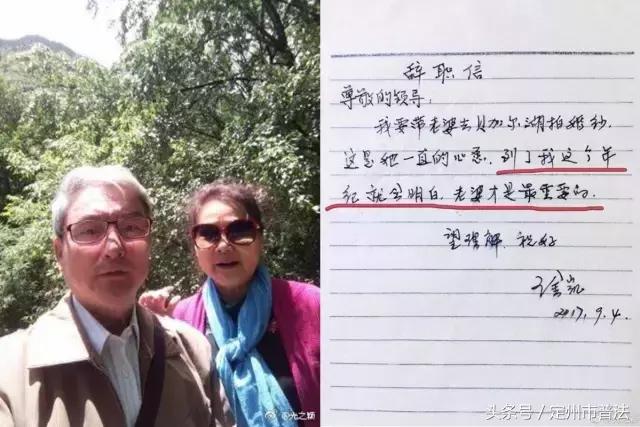 辞职信
尊敬的领导:
我要带老婆去贝加尔湖拍婚纱
这是她一直的心愿。到了我这个年
纪就会明白,老婆才是最重要的.
望理解、祝好
2017.9.4
头条号/定州市普法